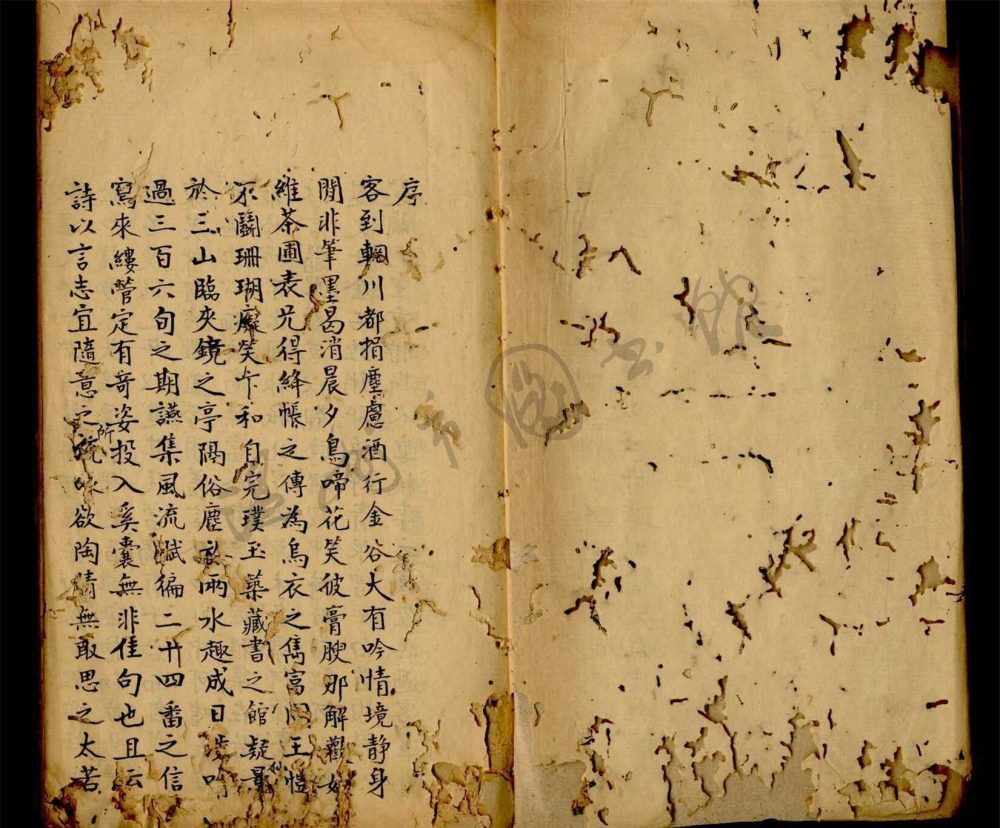 序
客到輞川都捐塵慮酒行金谷大有吟情境靜身
閒非筆墨曷消晨夕鳥啼花笑彼膏腴那解觀如
維茶圃表兄得絳帳之傳為烏衣之雋富同王愷
不鬬珊瑚癡笑卞和自完璞玉築藏書之館疑仙
於三山臨夾鏡之亭隔俗塵於兩水趣成日涉吟
過三百六旬之期讌集風流賦徧二十四番之信
寫來縷管定有奇姿投入奚囊無非佳句也且云
詩以言志宜隨意之所 欲陶情無取思之太苦